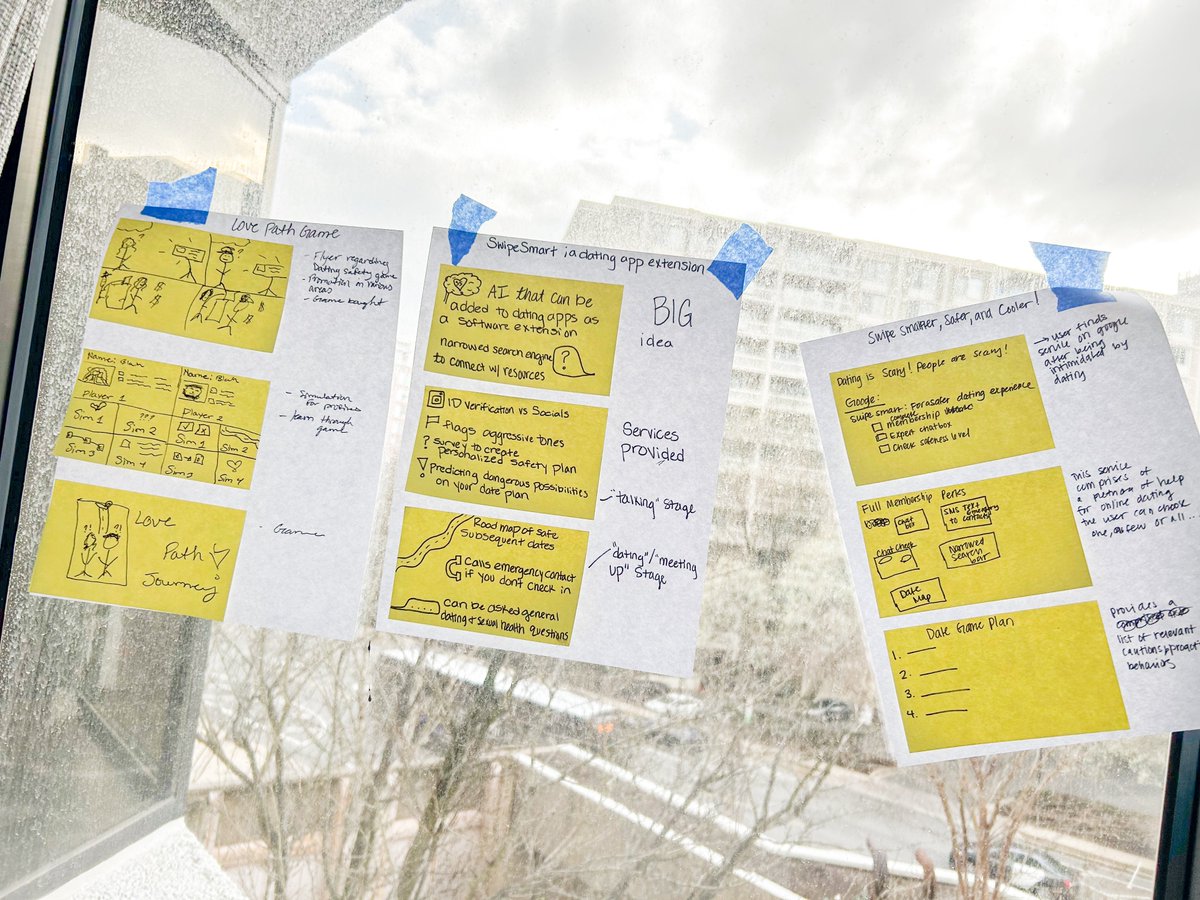 Love Path Game
- Flyer regarding
Dating safety game
- Promotion in various
areas
- Game bought
Name: Blah
Name: Blah
Player 1
Player 2
Sim 1
Sim 2
Sim 1
Sim 2
Sim 3
Sim 4
Sim 3
Sim 4
???
- Simulation
for profiles
- learn through
game
?!
?!
Love
Path
Journey
- Game
SwipeSmart : a dating app extension
AI that can be
added to dating apps as
a software extension
narrowed search engine
to connect w/ resources
?
BIG
idea
ID verification vs Socials
flags aggressive tones
? survey to create
personalized safety plan
Predicting dangerous possibilities
on your date plan
Services
provided
"talking" stage
Road map of safe
Subsequent dates
Calls emergency contact
if you don't check in
Can be asked general
dating & sexual health questions
"dating"/"meeting
up" stage
Swipe Smarter, Safer, and Cooler!
Dating is Scary! People are scary!
Google:
Swipe smart: For a safer dating experience
complete
membership
Expert chatbox
Check safeness level
→ user finds
service on google
after being
intimidated by
dating
Full Membership Perks
Chat
box
SMS Text
to emergency
contacts
Chat Check
Narrowed
Search
bar
Date
Map
This service
comprises of
a plethora of help
for online dating
the user can check
one, a few or all...
Date Game Plan
1.
2.
3.
4.
Provides a
list of relevant
behaviors